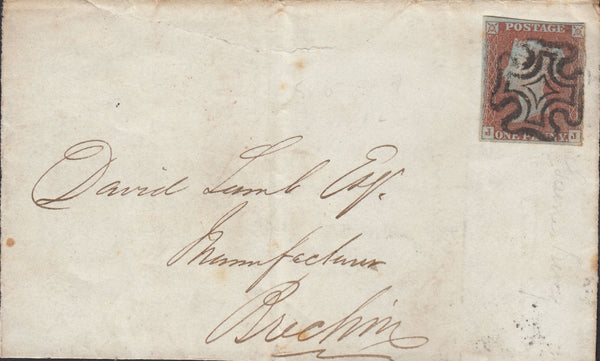 POSTAGE
J ONE PENNY J
David Lamb Esq.
Manufacturer
Brechin